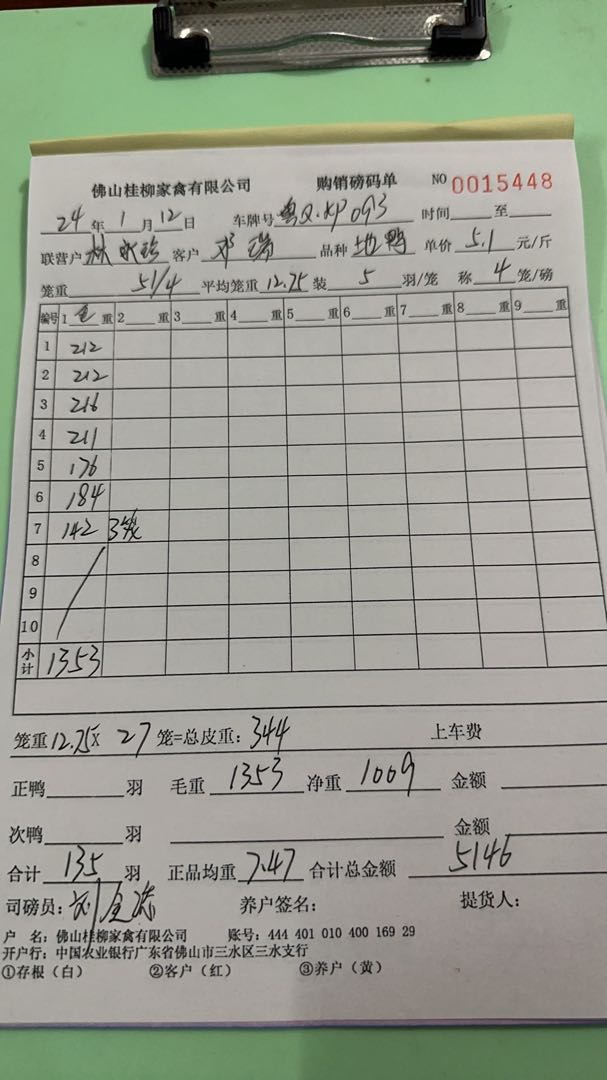 佛山桂柳家禽有限公司 购销磅码单 NO 0015448
24 年 1 月 12 日 车牌号 粤Q·KP093 时间 至
联营户 林 客户 邓瑞 品种 地鸭 单价 5.1 元/斤
笼重 51/4 平均笼重 12.75 装 5 羽/笼 称 4 笼/磅
编号 1 毛 重 2 重 3 重 4 重 5 重 6 重 7 重 8 重 9 重
1 212
2 212
3 216
4 211
5 176
6 184
7 142 3笼
8
9
10
小计 1353
笼重 12.75 × 27 笼=总皮重: 344 上车费
正鸭 羽 毛重 1353 净重 1009 金额
次鸭 羽 金额
合计 135 羽 正品均重 7.47 合计总金额 5146
司磅员: 刘 养户签名: 提货人:
户 名: 佛山桂柳家禽有限公司 账号: 444 401 010 400 169 29
开户行: 中国农业银行广东省佛山市三水区三水支行
①存根(白) ②客户(红) ③养户(黄)